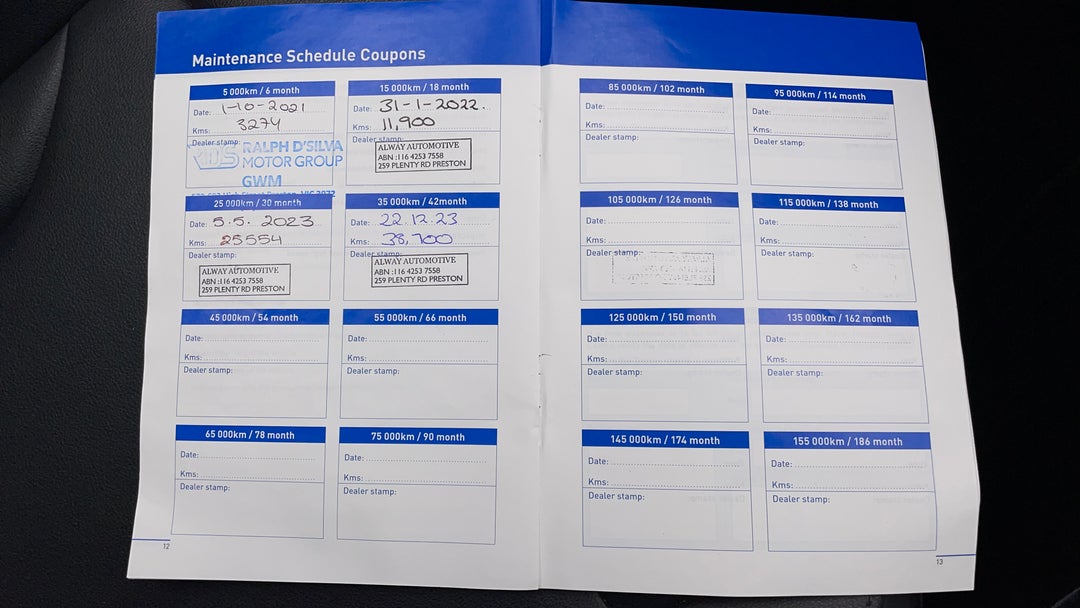 Maintenance Schedule Coupons
5 000km / 6 month
Date: 1-10-2021
Kms: 3274
Dealer stamp:
RALPH D'SILVA
MOTOR GROUP
GWM
15 000km / 18 month
Date: 31-1-2022.
Kms: 11,900
Dealer stamp:
ALWAY AUTOMOTIVE
ABN :116 4253 7558
259 PLENTY RD PRESTON
25 000km / 30 month
Date: 5.5. 2023
Kms: 25554
Dealer stamp:
ALWAY AUTOMOTIVE
ABN :116 4253 7558
259 PLENTY RD PRESTON
35 000km / 42month
Date: 22.12.23
Kms: 38,700
Dealer stamp:
ALWAY AUTOMOTIVE
ABN :116 4253 7558
259 PLENTY RD PRESTON
45 000km / 54 month
Date:
Kms:
Dealer stamp:
55 000km / 66 month
Date:
Kms:
Dealer stamp:
65 000km / 78 month
Date:
Kms:
Dealer stamp:
75 000km / 90 month
Date:
Kms:
Dealer stamp:
12
85 000km / 102 month
Date:
Kms:
Dealer stamp:
95 000km / 114 month
Date:
Kms:
Dealer stamp:
105 000km / 126 month
Date:
Kms:
Dealer stamp:
115 000km / 138 month
Date:
Kms:
Dealer stamp:
125 000km / 150 month
Date:
Kms:
Dealer stamp:
135 000km / 162 month
Date:
Kms:
Dealer stamp:
145 000km / 174 month
Date:
Kms:
Dealer stamp:
155 000km / 186 month
Date:
Kms:
Dealer stamp:
13